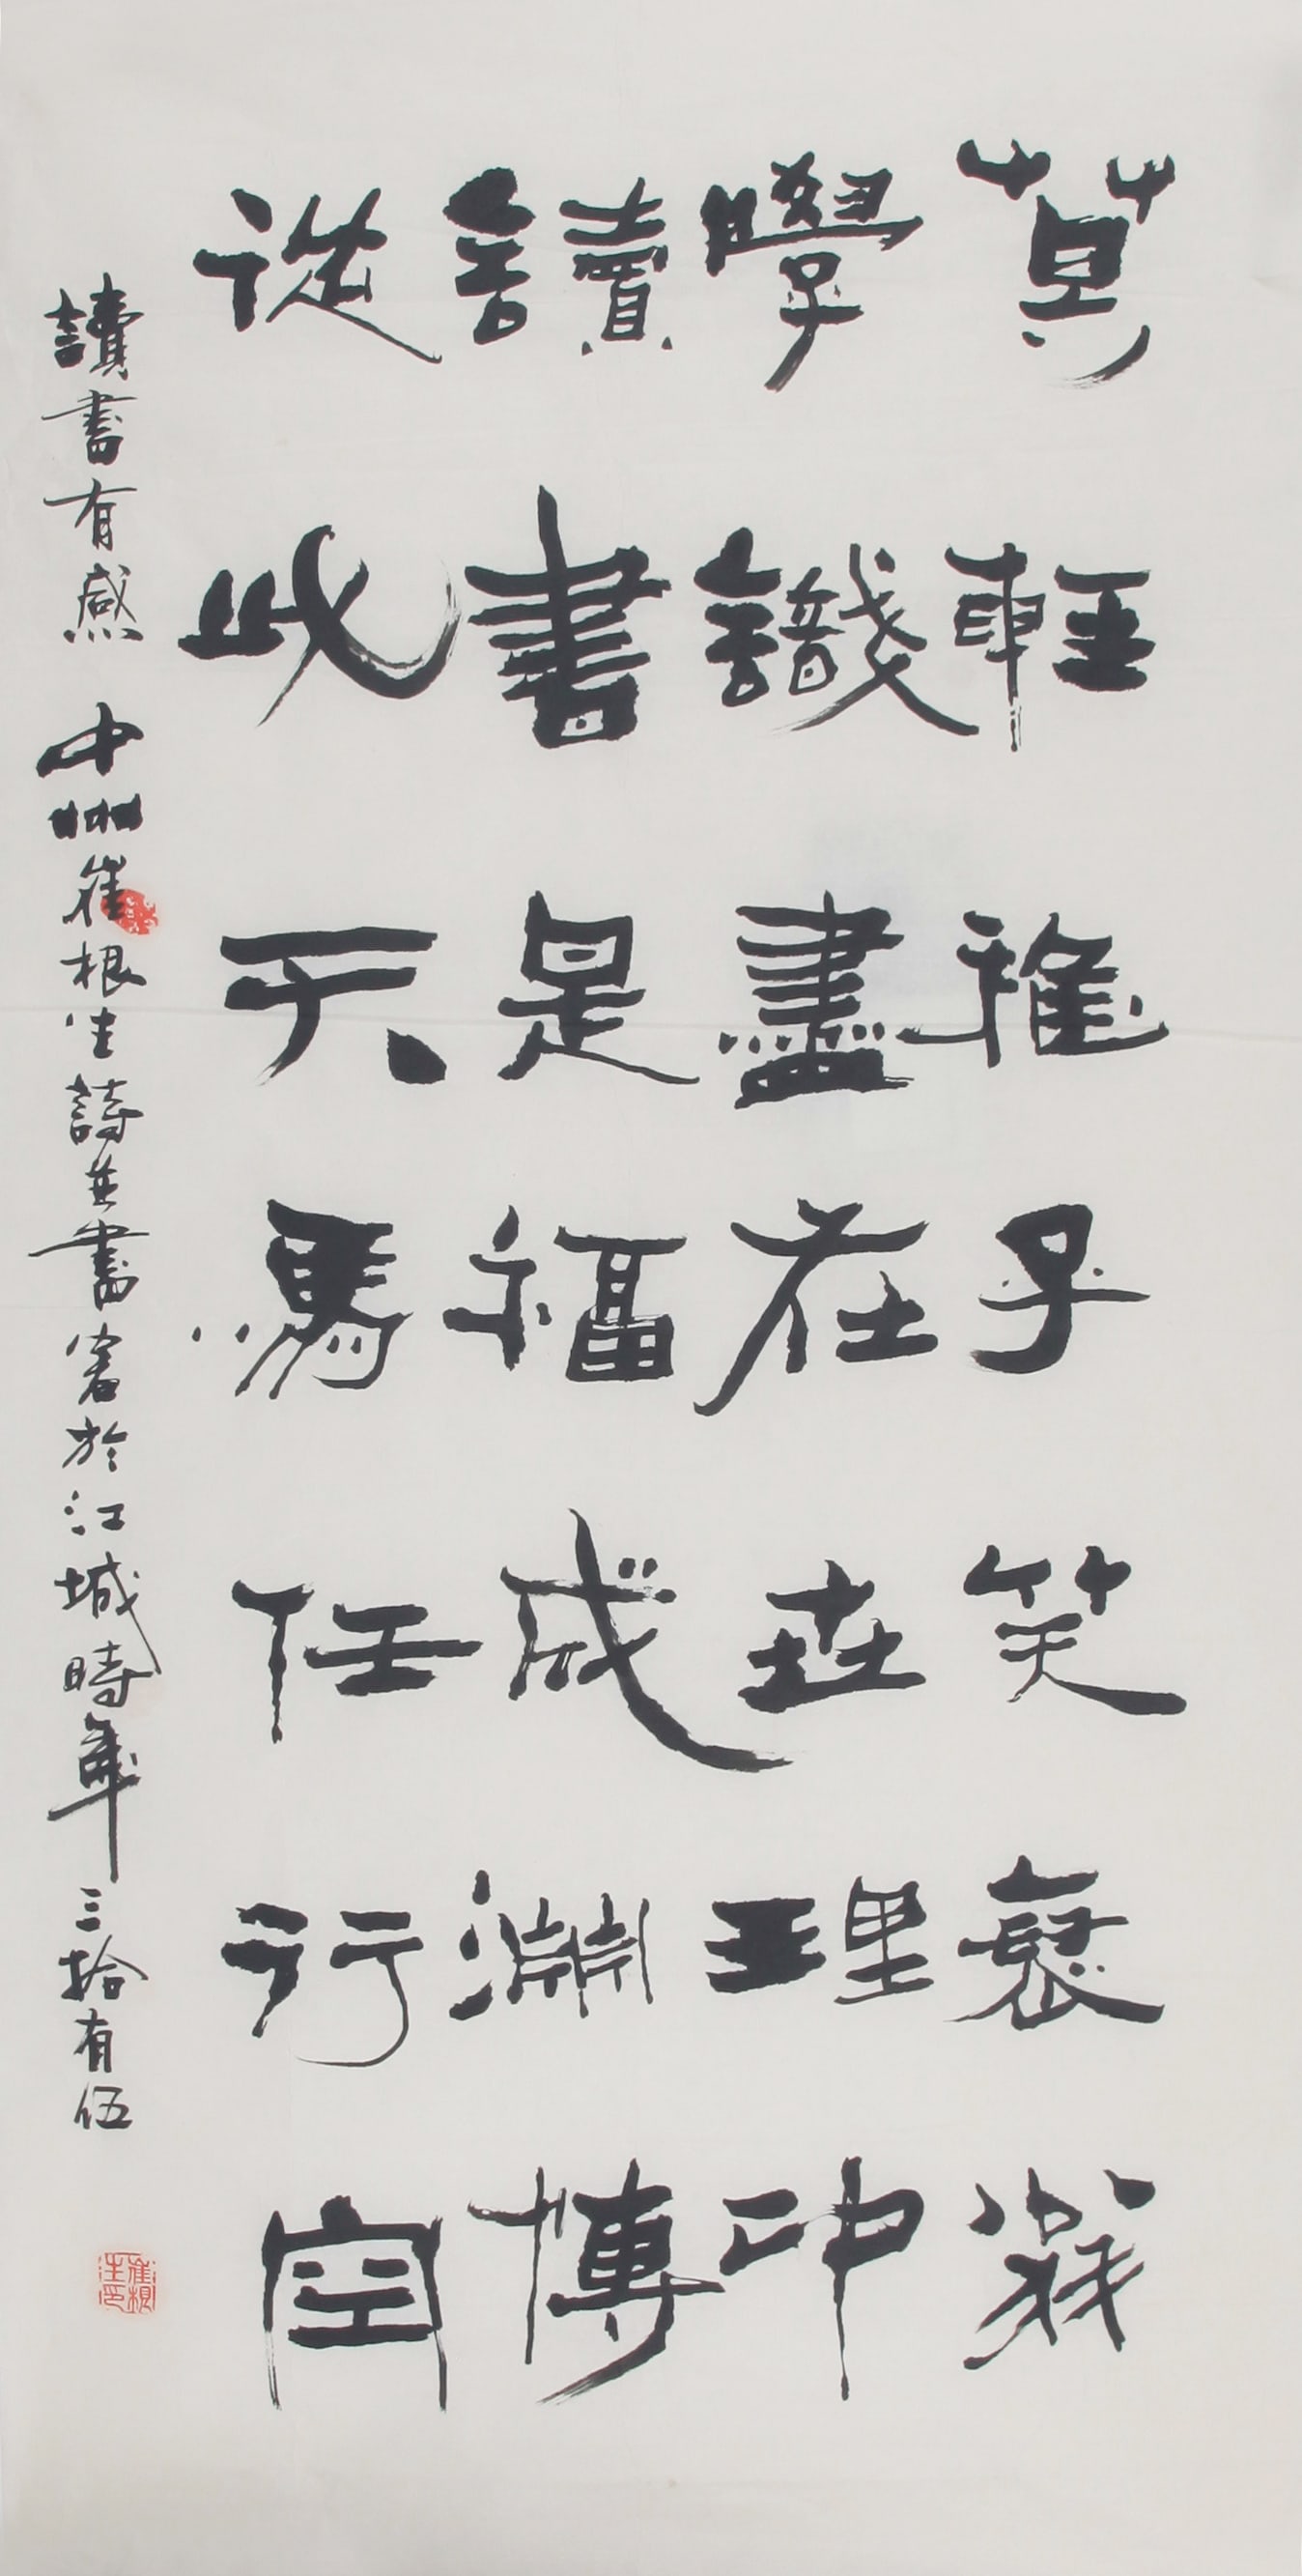 莫輕稚子笑衰翁
學識盡在世理中
讀書是福成淵博
從此天馬任行空
讀書有感 中州崔根生詩並書客於江城時年三拾有伍
崔根生印